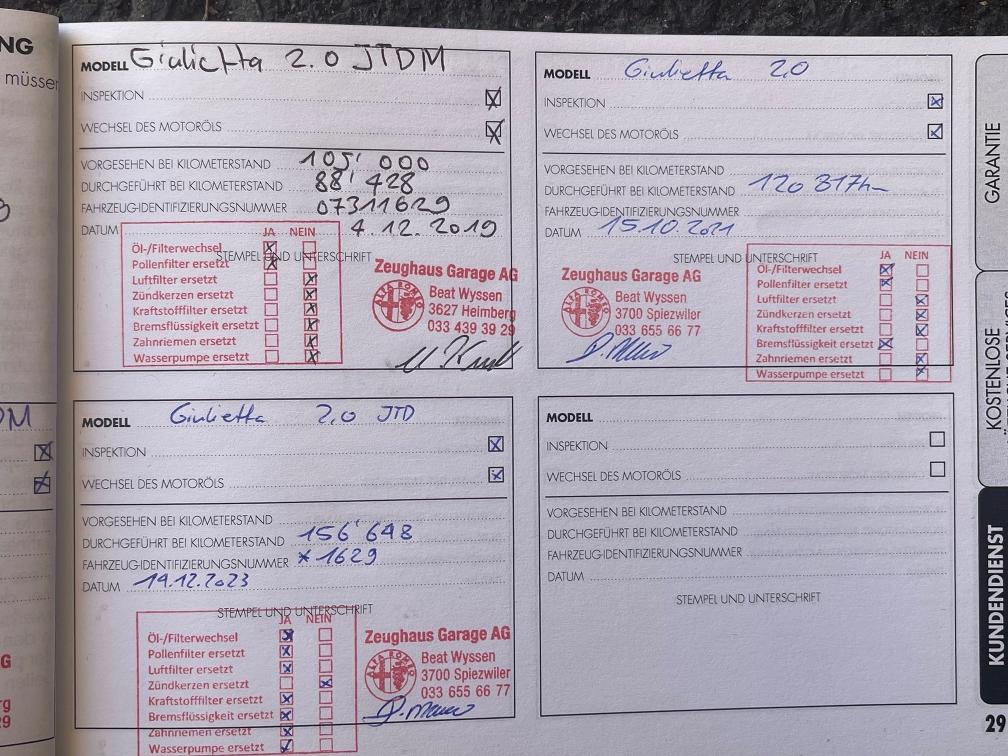 NG
müssen
DM
G
rg
29
MODELL Giulietta 2.0 JTDM
INSPEKTION
WECHSEL DES MOTORÖLS
VORGESEHEN BEI KILOMETERSTAND 105'000
DURCHGEFÜHRT BEI KILOMETERSTAND 88'428
FAHRZEUG-IDENTIFIZIERUNGSNUMMER 07311629
DATUM 4.12.2019
STEMPEL UND UNTERSCHRIFT
JA NEIN
Öl-/Filterwechsel
Pollenfilter ersetzt
Luftfilter ersetzt
Zündkerzen ersetzt
Kraftstofffilter ersetzt
Bremsflüssigkeit ersetzt
Zahnriemen ersetzt
Wasserpumpe ersetzt
Zeughaus Garage AG
ALFA ROMEO
Beat Wyssen
3627 Heimberg
033 439 39 29
MODELL Giulietta 2.0
INSPEKTION
WECHSEL DES MOTORÖLS
VORGESEHEN BEI KILOMETERSTAND
DURCHGEFÜHRT BEI KILOMETERSTAND 120 817km
FAHRZEUG-IDENTIFIZIERUNGSNUMMER
DATUM 15.10.2021
STEMPEL UND UNTERSCHRIFT
Zeughaus Garage AG
ALFA ROMEO
Beat Wyssen
3700 Spiezwiler
033 655 66 77
JA NEIN
Öl-/Filterwechsel
Pollenfilter ersetzt
Luftfilter ersetzt
Zündkerzen ersetzt
Kraftstofffilter ersetzt
Bremsflüssigkeit ersetzt
Zahnriemen ersetzt
Wasserpumpe ersetzt
MODELL Giulietta 2.0 JTD
INSPEKTION
WECHSEL DES MOTORÖLS
VORGESEHEN BEI KILOMETERSTAND
DURCHGEFÜHRT BEI KILOMETERSTAND 156'648
FAHRZEUG-IDENTIFIZIERUNGSNUMMER *1629
DATUM 19.12.2023
STEMPEL UND UNTERSCHRIFT
JA NEIN
Öl-/Filterwechsel
Pollenfilter ersetzt
Luftfilter ersetzt
Zündkerzen ersetzt
Kraftstofffilter ersetzt
Bremsflüssigkeit ersetzt
Zahnriemen ersetzt
Wasserpumpe ersetzt
Zeughaus Garage AG
ALFA ROMEO
Beat Wyssen
3700 Spiezwiler
033 655 66 77
MODELL
INSPEKTION
WECHSEL DES MOTORÖLS
VORGESEHEN BEI KILOMETERSTAND
DURCHGEFÜHRT BEI KILOMETERSTAND
FAHRZEUG-IDENTIFIZIERUNGSNUMMER
DATUM
STEMPEL UND UNTERSCHRIFT
GARANTIE
KOSTENLOSE
KUNDENDIENST
29